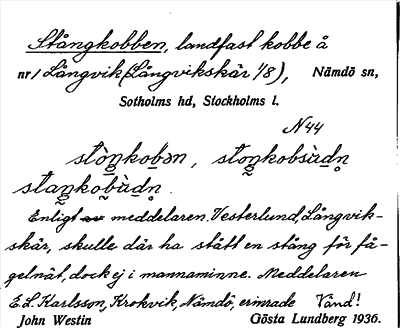 Stångkobben, landfast kobbe å
nr 1 Långvik (Långvikskär 1/8), Nämdö sn,
Sotholms hd, Stockholms l.
N44
stòŋkobən, stoŋkobsùdn̥
staŋkobùdn̥.
Enligt av meddelaren Vesterlund, Långvik-
skär, skulle där ha stått en stång för få-
gelnät, dock ej i mannaminne. Meddelaren
E.L. Karlsson, Krokvik, Nämdö, erinrade Vänd!
John Westin Gösta Lundberg 1936.